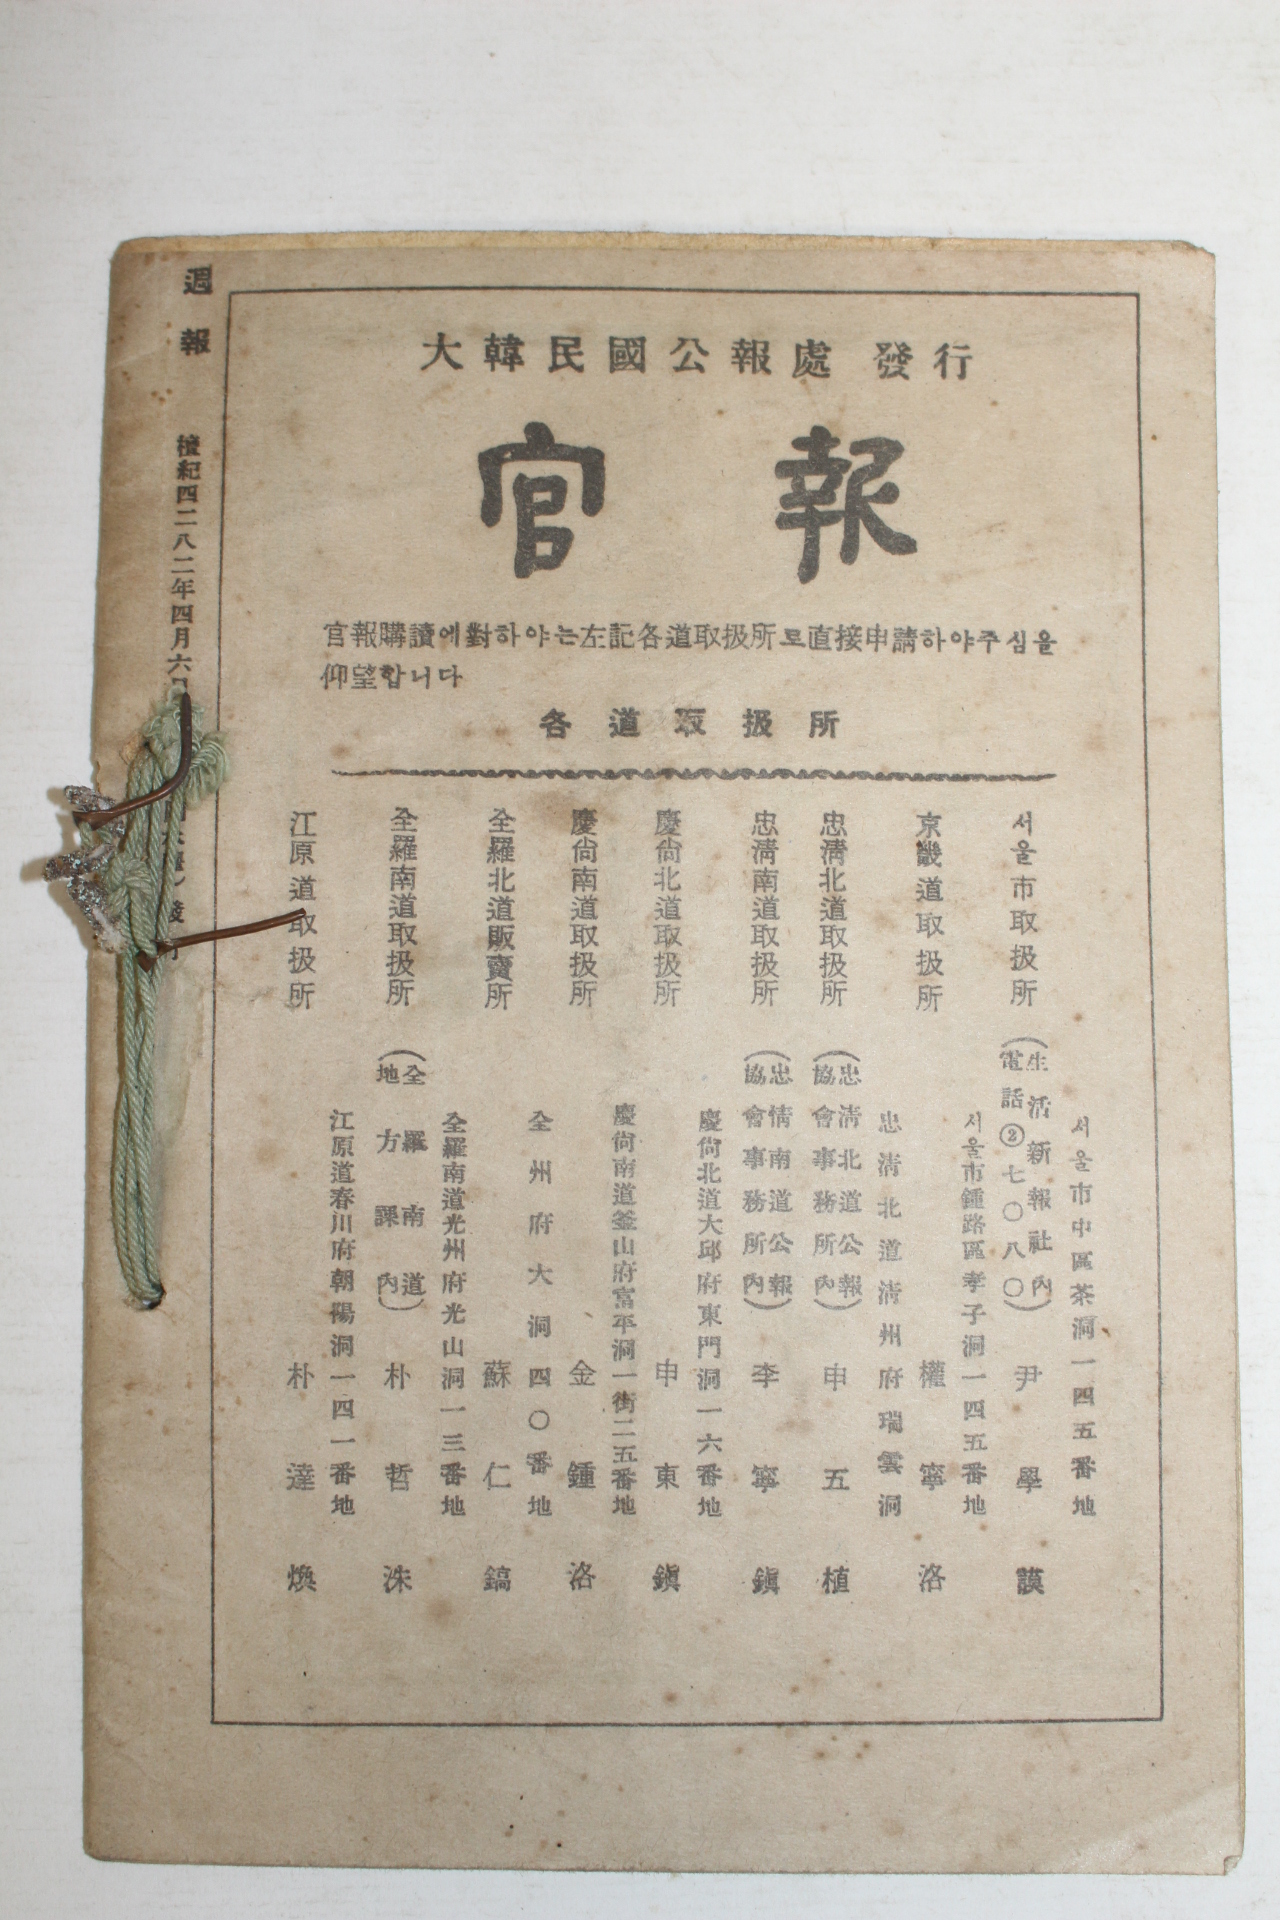 週報
檀紀四二八二年四月六日
大韓民國公報處 發行
官報
官報購讀에對하야는左記各道取扱所로直接申請하야주심을
仰望합니다
各道取扱所
서울市取扱所
서울市中區茶洞一四五番地
(生活新報社內
電話②七〇八〇)
尹學謨
京畿道取扱所
서울市鍾路區孝子洞一四五番地
權寧洛
忠淸北道取扱所
忠淸北道淸州府瑞雲洞
(忠淸北道公報
協會事務所內)
申五植
忠淸南道取扱所
(忠情南道公報
協會事務所內)
李寧鎭
慶尙北道取扱所
慶尙北道大邱府東門洞一六番地
申東鎭
慶尙南道取扱所
慶尙南道釜山府富平洞一街二五番地
金鍾洛
全羅北道販賣所
全州府大洞四〇番地
蘇仁鎬
全羅南道取扱所
全羅南道光州府光山洞一三番地
(全羅南道
地方課內)
朴哲洙
江原道取扱所
江原道春川府朝陽洞一四一番地
朴達煥